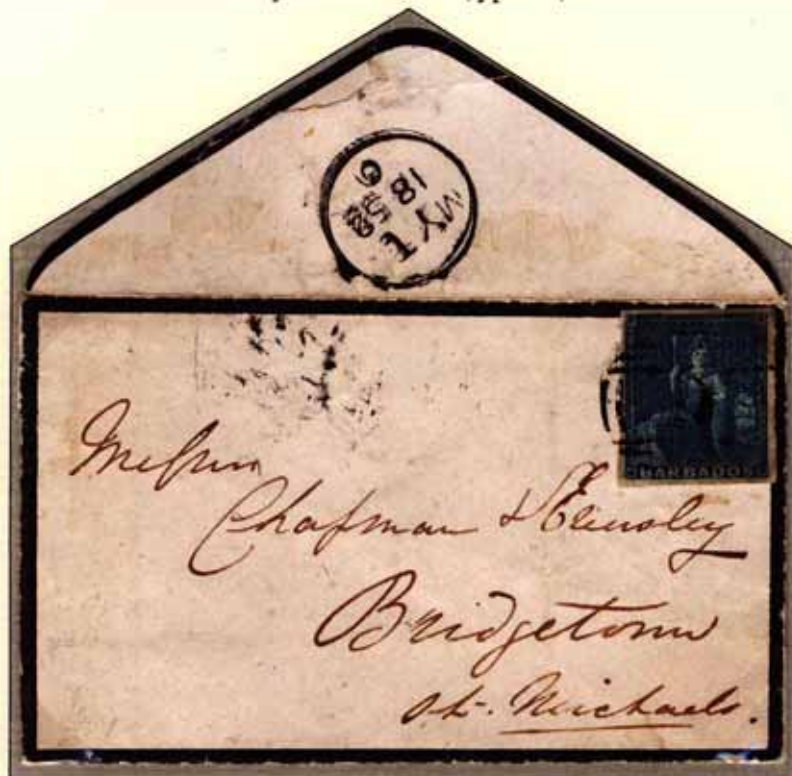 6
MY 18
1858
BARBADOS
Messrs
Chapman &
Bridgetown
St. Michaels.